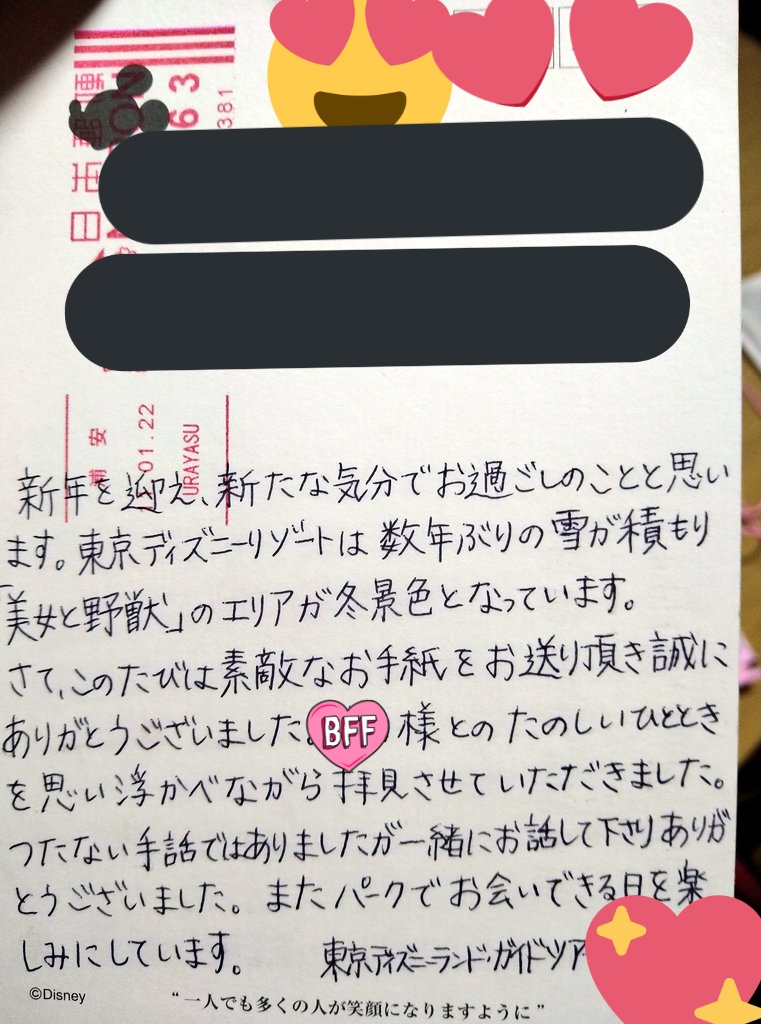 63
381
浦安
01.22
URAYASU
新年を迎え、新たな気分でお過ごしのことと思い
ます。東京ディズニーリゾートは数年ぶりの雪が積もり
「美女と野獣」のエリアが冬景色となっています。
さて、このたびは素敵なお手紙をお送り頂き誠に
ありがとうございました。BFF様とのたのしいひととき
を思い浮かべながら拝見させていただきました。
つたない手話ではありましたが一緒にお話して下さりありが
とうございました。またパークでお会いできる日を楽
しみにしています。 東京ディズニーランド・ガイドツアー
©Disney
“一人でも多くの人が笑顔になりますように”